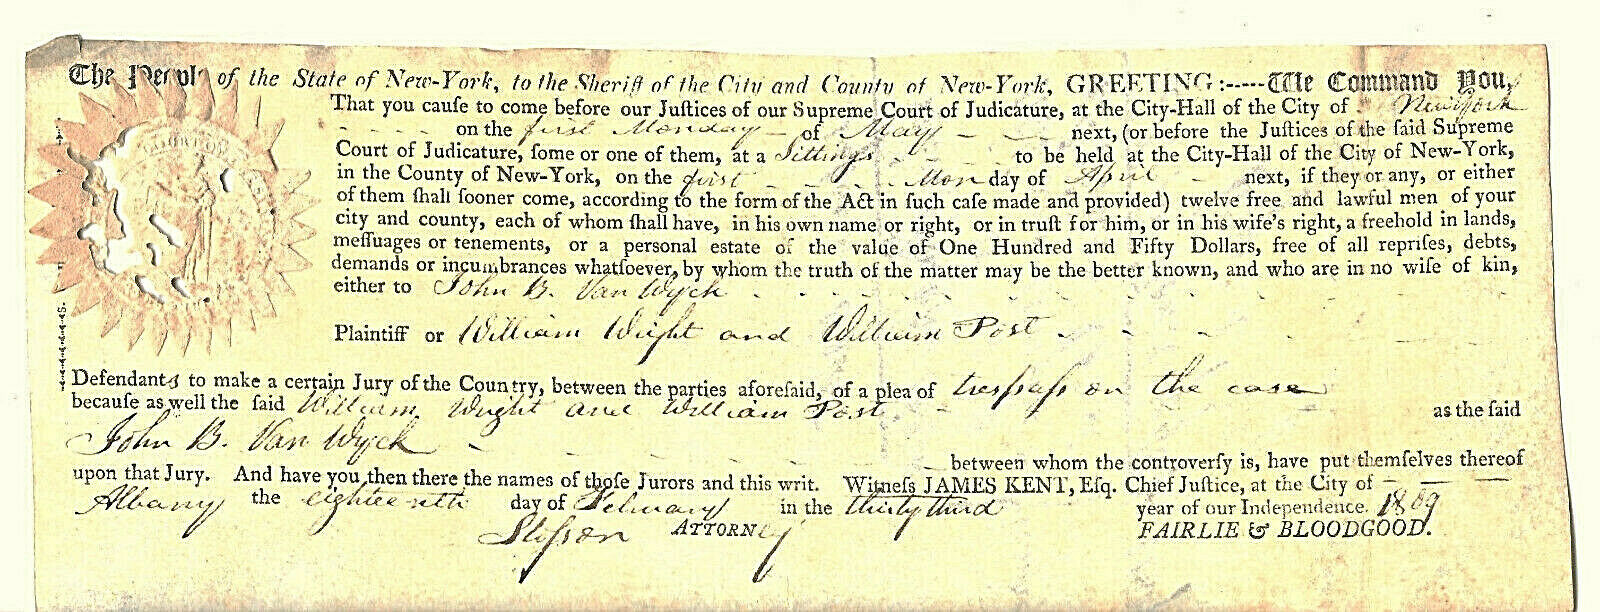 The People of the State of New-York, to the Sheriff of the City and County of New-York, GREETING:-----We Command You,
That you cauſe to come before our Juſtices of our Supreme Court of Judicature, at the City-Hall of the City of New York
on the first Monday of May next, (or before the Juſtices of the ſaid Supreme
Court of Judicature, ſome or one of them, at a Sittings to be held at the City-Hall of the City of New-York,
in the County of New-York, on the first Monday of April next, if they or any, or either
of them ſhall ſooner come, according to the form of the Act in ſuch caſe made and provided) twelve free and lawful men of your
city and county, each of whom ſhall have, in his own name or right, or in truſt for him, or in his wife's right, a freehold in lands,
meſſuages or tenements, or a perſonal eſtate of the value of One Hundred and Fifty Dollars, free of all repriſes, debts,
demands or incumbrances whatſoever, by whom the truth of the matter may be the better known, and who are in no wiſe of kin,
either to John B. Van Wyck
Plaintiff or William Wright and William Post
Defendants to make a certain Jury of the Country, between the parties aforeſaid, of a plea of treſpaſs on the case
becauſe as well the ſaid William Wright and William Post as the ſaid
John B. Van Wyck
between whom the controverſy is, have put themſelves thereof
upon that Jury. And have you then there the names of thoſe Jurors and this writ. Witneſs JAMES KENT, Eſq. Chief Juſtice, at the City of
Albany the eighteenth day of February in the thirty third year of our Independence. 1809
ATTORNEY FAIRLIE & BLOODGOOD.